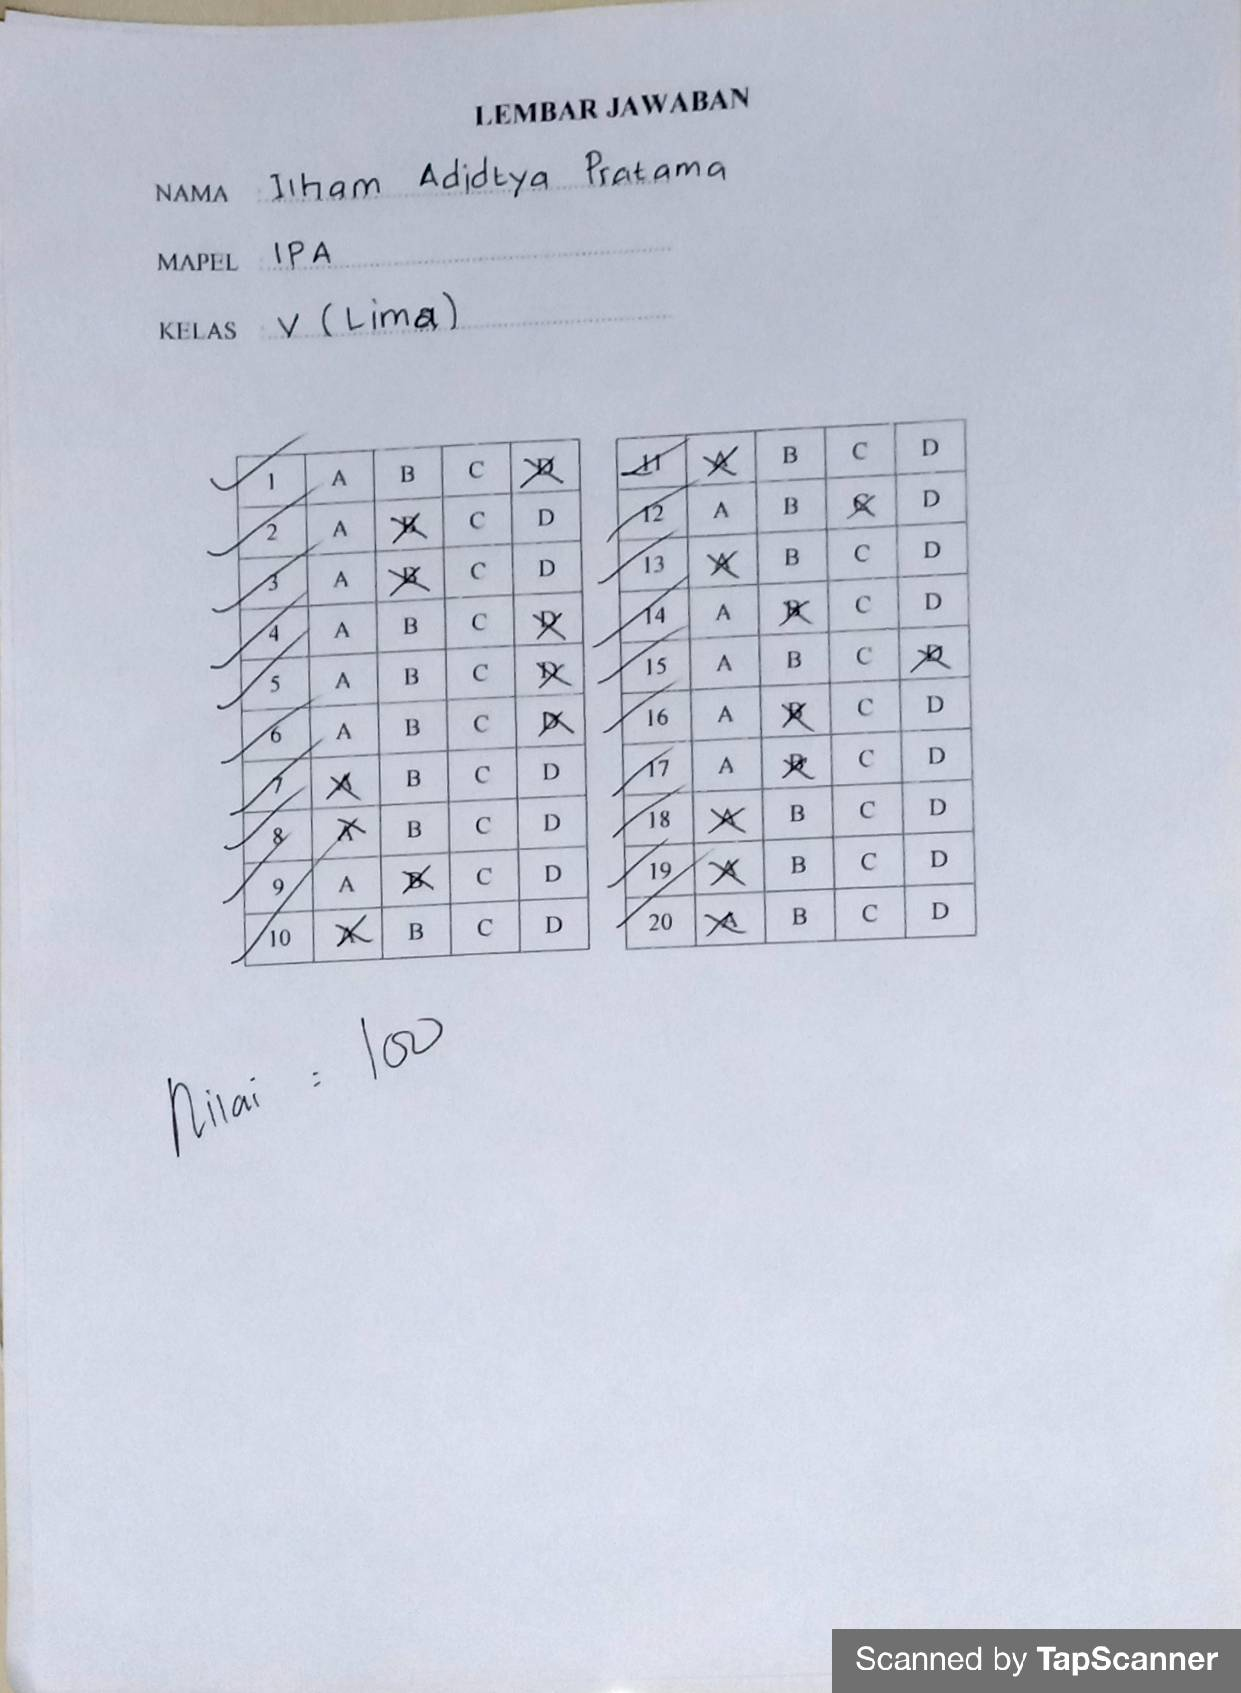 LEMBAR JAWABAN
NAMA Ilham Adidtya Pratama
MAPEL IPA
KELAS V (Lima)
1 A B C D 11 A B C D
2 A B C D 12 A B C D
3 A B C D 13 A B C D
4 A B C D 14 A B C D
5 A B C D 15 A B C D
6 A B C D 16 A B C D
7 A B C D 17 A B C D
8 A B C D 18 A B C D
9 A B C D 19 A B C D
10 A B C D 20 A B C D
Nilai = 100
Scanned by TapScanner